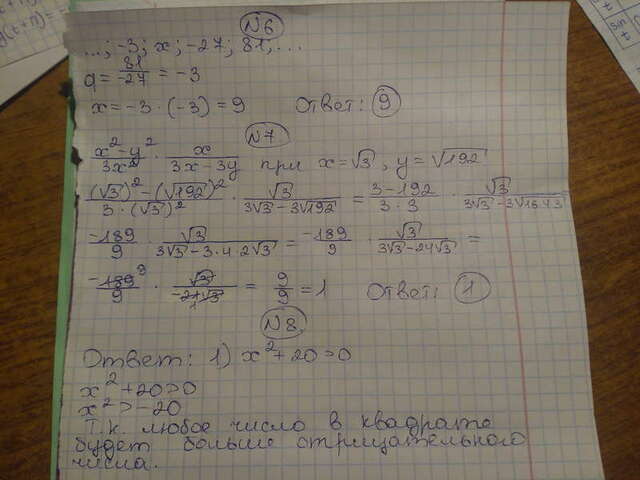 №6
...; -3; x; -27; 81; ...
q = 81/-27 = -3
x = -3 · (-3) = 9 Ответ: 9
№7
x² - y²/3x² · x/3x - 3y при x = √3, y = √192
(√3)² - (√192)²/3 · (√3)² · √3/3√3 - 3√192 = 3 - 192/3 · 3 · √3/3√3 - 3√16·4·3
-189/9 · √3/3√3 - 3·4·2√3 = -189/9 · √3/3√3 - 24√3 =
-189 9/9 · √3/-21√3 1 = 9/9 = 1 Ответ: 1
№8
Ответ: 1) x² + 20 > 0
x² + 20 > 0
x² > -20
Т.к. любое число в квадрате
будет больше отрицательного
числа.